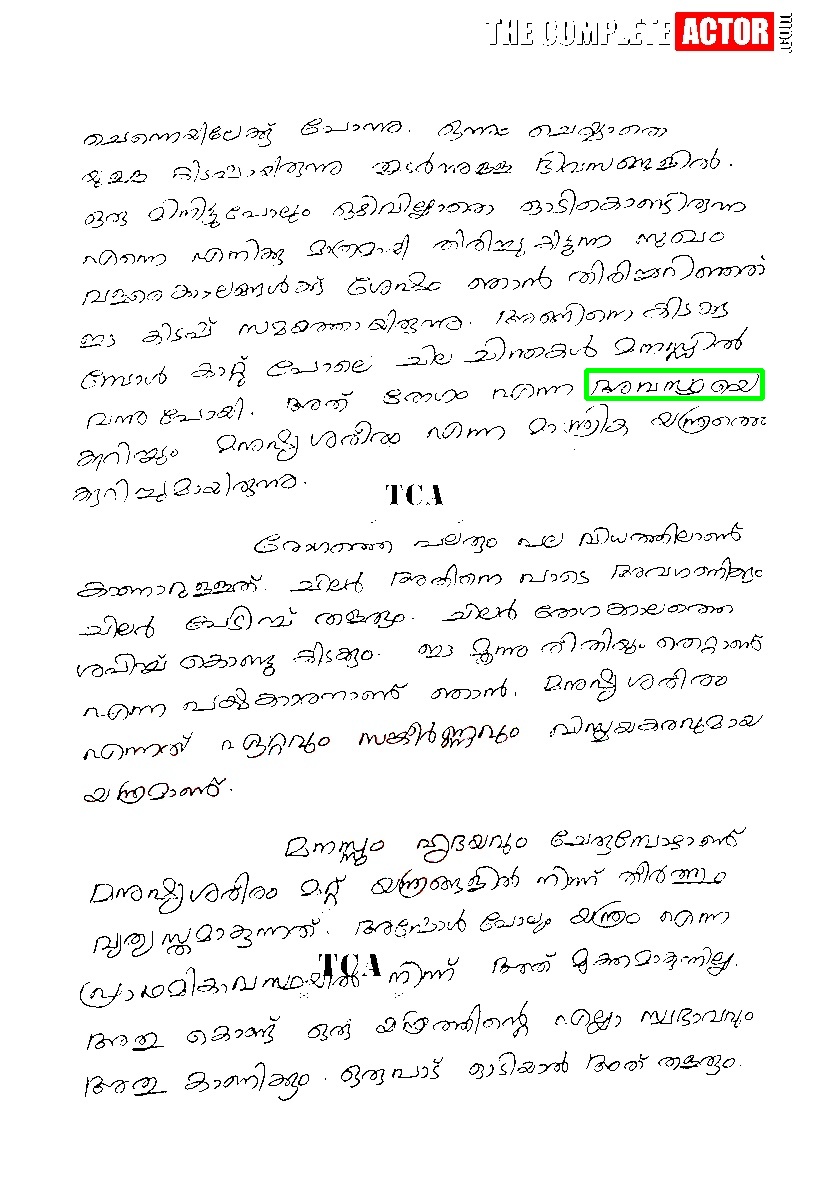 THE COMPLETE ACTOR
ചെന്നൈയിലേക്ക് പോന്നു. ഒന്നും ചെയ്യാതെ
മൂകമായ കിടപ്പായിരുന്നു തുടർന്നുള്ള ദിവസങ്ങളിൽ.
ഒരു മിനിട്ടുപോലും ഒഴിവില്ലാതെ ഓടികൊണ്ടിരുന്ന
എന്നെ എനിക്കു മാത്രമായി തിരിച്ചു കിട്ടുന്ന സുഖം
വളരെകാലങ്ങൾക്ക് ശേഷം ഞാൻ തിരിച്ചറിഞ്ഞത്
ഈ കിടപ്പ് സമയത്തായിരുന്നു. അങ്ങിനെ കിടക്കു
മ്പോൾ കാറ്റ് പോലെ ചില ചിന്തകൾ മനസ്സിൽ
വന്നുപോയി. അത് രോഗം എന്ന അവസ്ഥയെ
കുറിച്ചും മനുഷ്യശരീരം എന്ന മാന്ത്രിക യന്ത്രത്തെ
കുറിച്ചുമായിരുന്നു.
TCA
രോഗത്തെ പലരും പല വിധത്തിലാണ്
കാണാറുള്ളത്. ചിലർ അതിനെ പാടെ അവഗണിക്കും
ചിലർ പേടിച്ച് തളരും. ചിലർ രോഗകാലത്തെ
ശപിച്ച് കൊണ്ടു കിടക്കും. ഈ മൂന്നു രീതിയും തെറ്റാണ്
എന്ന പക്ഷകാരനാണ് ഞാൻ. മനുഷ്യശരീരം
എന്നത് ഏറ്റവും സങ്കീർണ്ണവും വിസ്മയകരവുമായ
യന്ത്രമാണ്.
മനസ്സും ഹൃദയവും ചേരുമ്പോഴാണ്
മനുഷ്യശരീരം മറ്റ് യന്ത്രങ്ങളിൽ നിന്ന് തീർത്തും
വ്യത്യസ്തമാകുന്നത്. അപ്പോൾ പോലും യന്ത്രം എന്ന
പ്രാഥമികാവസ്ഥയിൽ നിന്ന് അത് മുക്തമാകുന്നില്ല.
TCA
അതു കൊണ്ട് ഒരു യന്ത്രത്തിന്റെ എല്ലാ സ്വഭാവവും
അതു കാണിക്കും. ഒരുപാട് ഓടിയാൽ അത് തളരും.